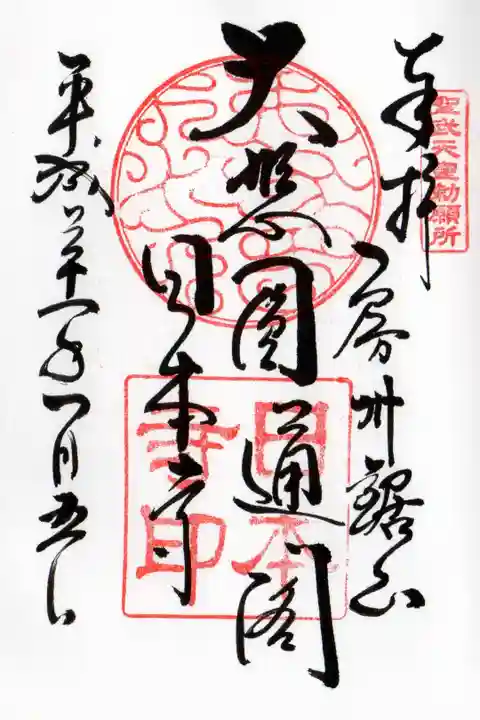 聖武天皇勅願所
奉拝
房州鋸山
大悲圓通閣
日本寺
日本寺印
平成二十一年一月五日